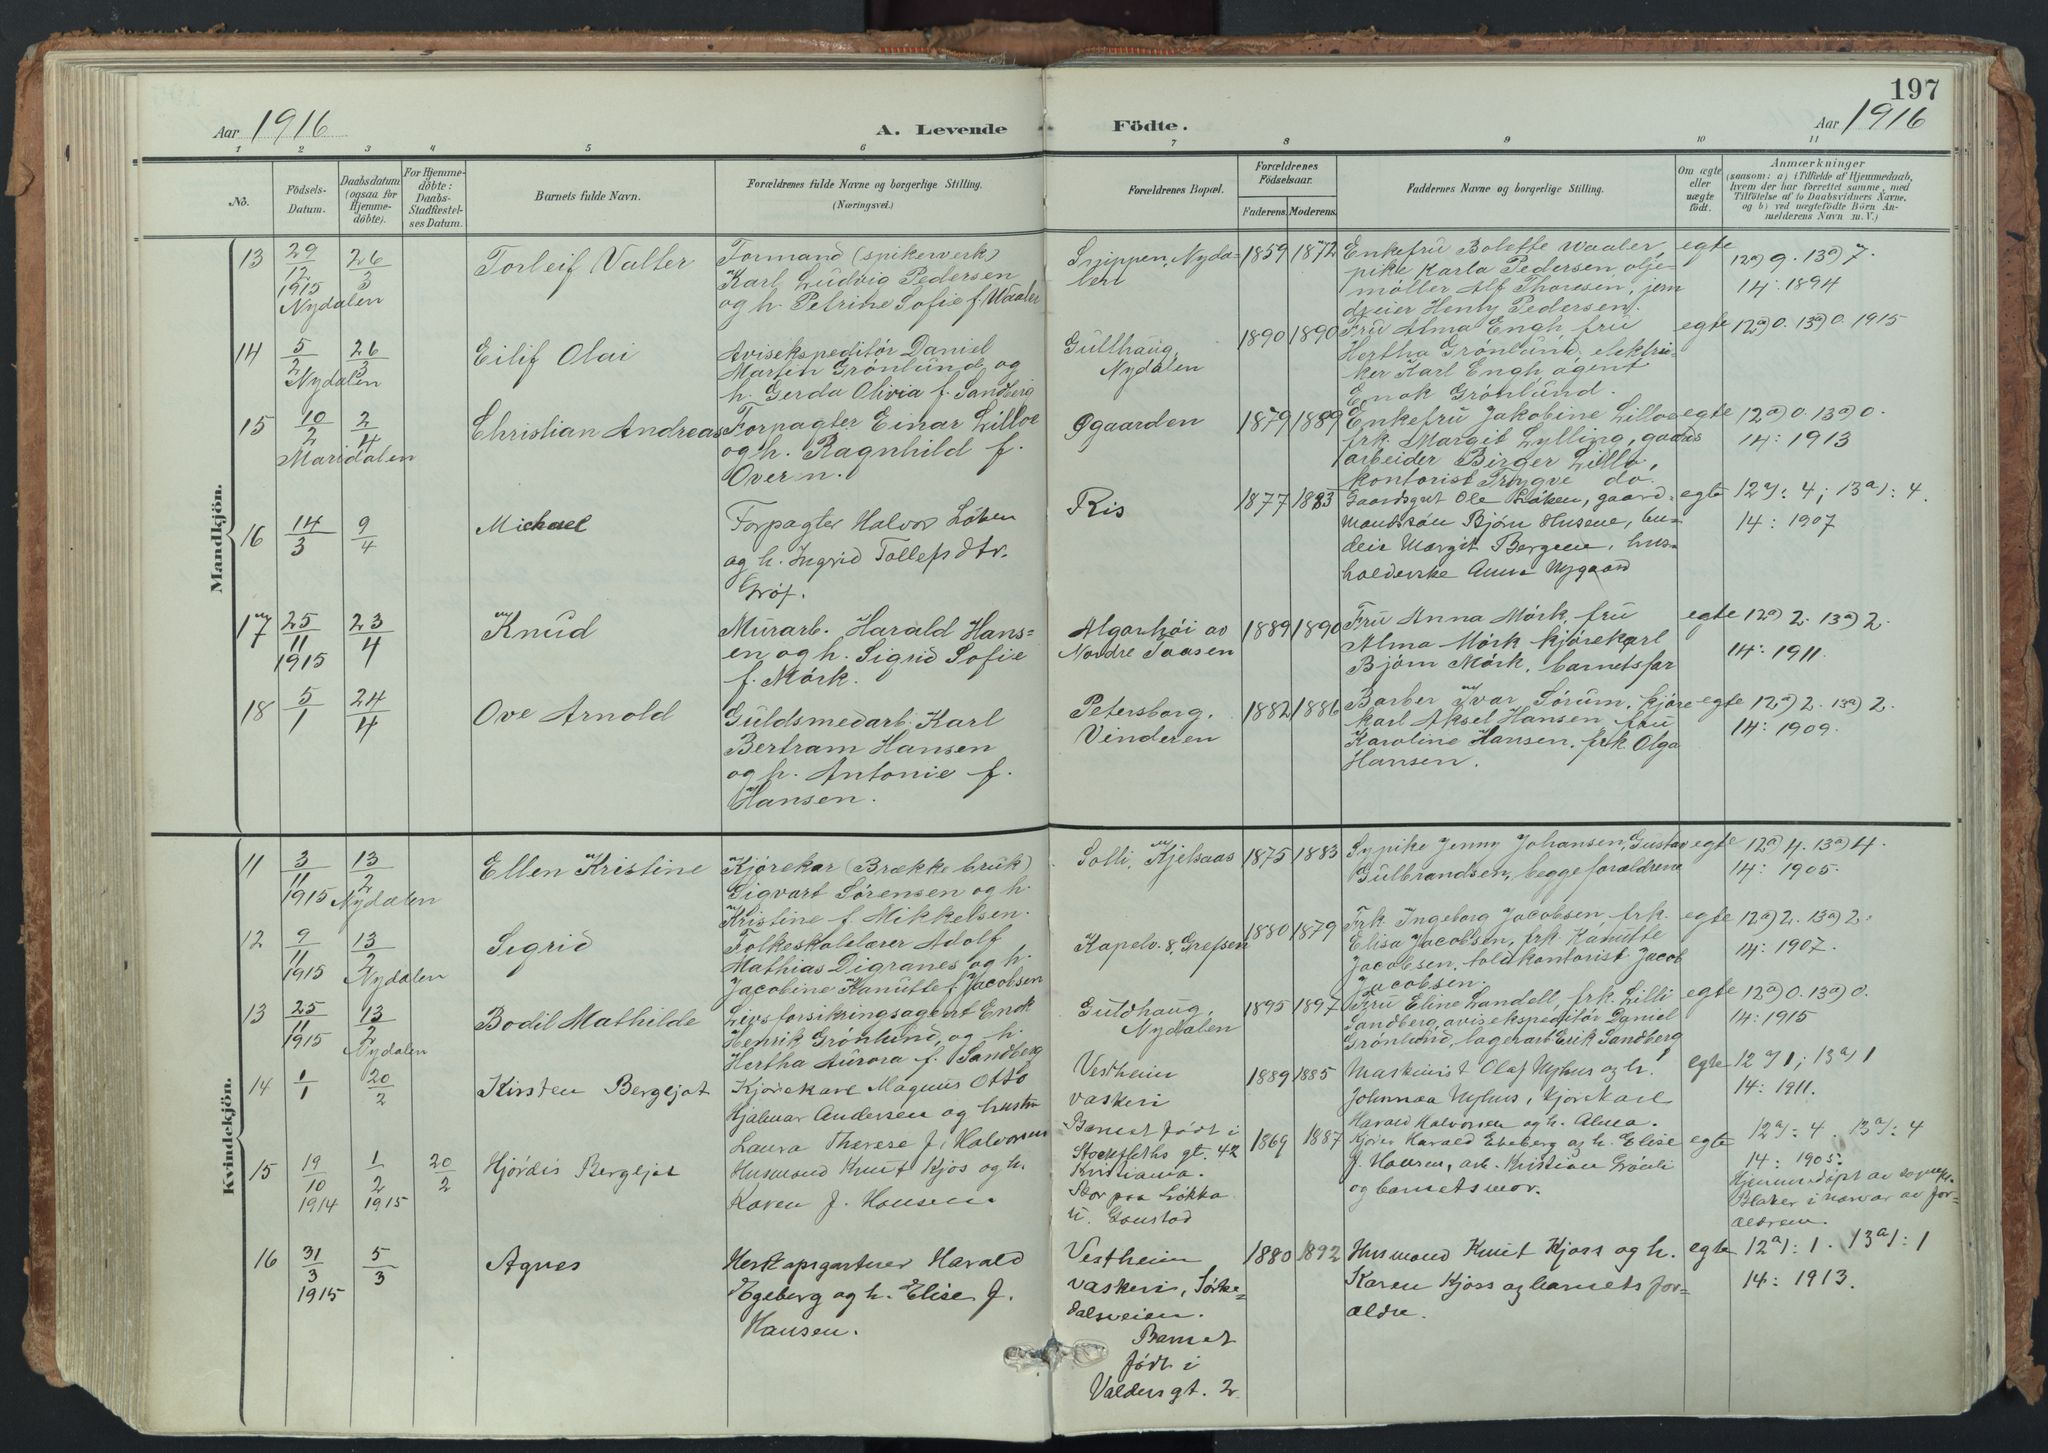 197
Aar 1916
A. Levende Födte.
Aar 1916
1 2 3 4 5 6 7 8 9 10 11
No.
Födsels-Datum.
Daabsdatum (ogsaa for Hjemmedöbte).
For Hjemmedöbte: Daabs-Stadfæstelses Datum.
Barnets fulde Navn.
Forældrenes fulde Navne og borgerlige Stilling.
(Næringsvei.)
Forældrenes Bopæl.
Forældrenes Födselsaar.
Faderens. Moderens.
Faddernes Navne og borgerlige Stilling.
Om ægte eller uægte födt.
Anmærkninger
(saasom: a) i Tilfælde af Hjemmedaab, hvem der har forrettet samme, med Tilföielse af to Daabsvidners Navne, og b) ved uægtefödte Börn Anmelderens Navn m. V.)
Mandkjön.
13
29/12 1915 Nydalen
26/3
Torleif Valter
Formand (spikerverk)
Karl Ludvig Pedersen
og h. Petrine Sofie f. Waaler
Snippen, Nydalen
1859 1872
Enkefru Bolette Waaler,
pike Karla Pedersen, olje-
møller Alf Thoresen, jern
dreier Henry Pedersen.
egte
12a) 9. 13a) 7.
14: 1894
14
5/2 Nydalen
26/3
Eilif Olai
Avisekspeditør Daniel
Marten Grønlund og
h. Gerda Olivia f. Sandberg
Gullhaug,
Nydalen
1890 1890
Fru Alma Engh, fru
Hertha Grønlund, elektri-
ker Karl Engh, agent
Enok Grønlund.
egte
12a) 0. 13a) 0. 1915
15
10/2 Maridalen
2/4
Christian Andreas
Forpagter Einar Lilloe
og h. Ragnhild f.
Overn.
Øgaarden
1879 1889
Enkefru Jakobine Lilloe
frk. Margit Lylling, gaards
arbeider Birger Lillo,
kontorist Trygve do.
egte
12a) 0. 13a) 0.
14: 1913
16
14/3
9/4
Michael
Forpagter Halvor Løken
og h. Ingrid Tollefsdtr.
Grøf.
Ris
1877 1883
Gaardsgut Ole Løken, gaard-
mandssøn Bjørn Husene, bu-
deie Margit Bergene, hus-
holderske Anna Nygaard
egte
12a): 4; 13a): 4.
14: 1907
17
25/11 1915
23/4
Knud
Murarb. Harald Hans-
en og h. Sigrid Sofie
f. Mørk.
Algarhøi av
Nordre Taasen
1889 1890
Fru Anna Mørk, fru
Alma Mørk, kjørekarl
Bjørn Mørk, barnets far
egte
12a) 2. 13a) 2.
14: 1911.
18
5/1
24/4
Ove Arnold
Guldsmedarb. Karl
Bertram Hansen
og h. Antonie f.
Hansen.
Petersborg,
Vinderen
1882 1886
Barber Ivar Sørum, kjøre
karl Aksel Hansen, fru
Karoline Hansen, frk Olga
Hansen.
egte
12a) 2. 13a) 2.
14: 1909.
Kvindekjön.
11
3/11 1915
13/2 Nydalen
Ellen Kristine
Kjørekar (Brække bruk)
Sigvart Sørensen og h.
Kristine f. Mikkelsen.
Solli, Kjelsaas
1875 1883
Sypike Jenny Johansen, Gustav
Gulbrandsen, begge forældrene
egte
12a) 4. 13a) 4.
14: 1905.
12
9/11 1915
13/2 Nydalen
Sigrid
Folkeskolelærer Adolf
Mathias Digranes og h.
Jacobine Kanutte f. Jacobsen
Kapelv. 8, Grefsen
1880 1879
Frk. Ingeborg Jacobsen, frk.
Elisa Jacobsen, frk Kanutte
Jacobsen, toldkontorist Jacob
Jacobsen.
egte
12a) 2. 13a) 2.
14: 1907.
13
25/11 1915
13/2 Nydalen
Bodil Mathilde
Livsforsikringsagent Enok
Henrik Grønlund, og h.
Hertha Aurora f. Sandberg
Guldhaug,
Nydalen
1895 1897
Fru Eline Landell, frk. Lilli
Sandberg, avisekspeditør Daniel
Grønlund, lagerarb Erik Sandberg
egte
12a) 0. 13a) 0.
14: 1915
14
1/1
20/2
Kirsten Bergljot
Kjørekarl Magnus Otto
Hjalmar Andersen og hustru
Laura Therese f. Halvorsen
Vestheim
vaskeri
1889 1885
Maskinist Olaf Nyhus og h.
Johanna Nyhus, kjørekarl
Harald Halvorsen og h. Alma.
egte
12a) 1; 13a) 1
14: 1911.
15
19/10 1914
1/2 1915
20/2
Hjørdis Bergljot
Husmand Knut Kjos og h.
Karen f. Hansen.
Barnet født i
Stockfleths gt. 42
Kristiania.
Bor paa Løkka
u. Gaustad
1869 1887
Kjører Harald Egeberg og h. Elise
f. Hansen, arb. Kristian Grønli
og barnets mor.
egte
12a): 4. 13a): 4
14: 1905.
Hjemmedøpt av sognepr.
Blaker i nærvær av for-
ældrene.
16
31/3 1915
5/3
Agnes
Herskapsgartner Harald
Egeberg og h. Elise f.
Hansen.
Vestheim
vaskeri, Sørke-
dalsveien.
Barnet
født i
Valdersgt. 2
1880 1892
Husmand Knut Kjoss og h.
Karen Kjoss og barnets for-
ældre.
egte
12a): 1. 13a): 1
14: 1913.